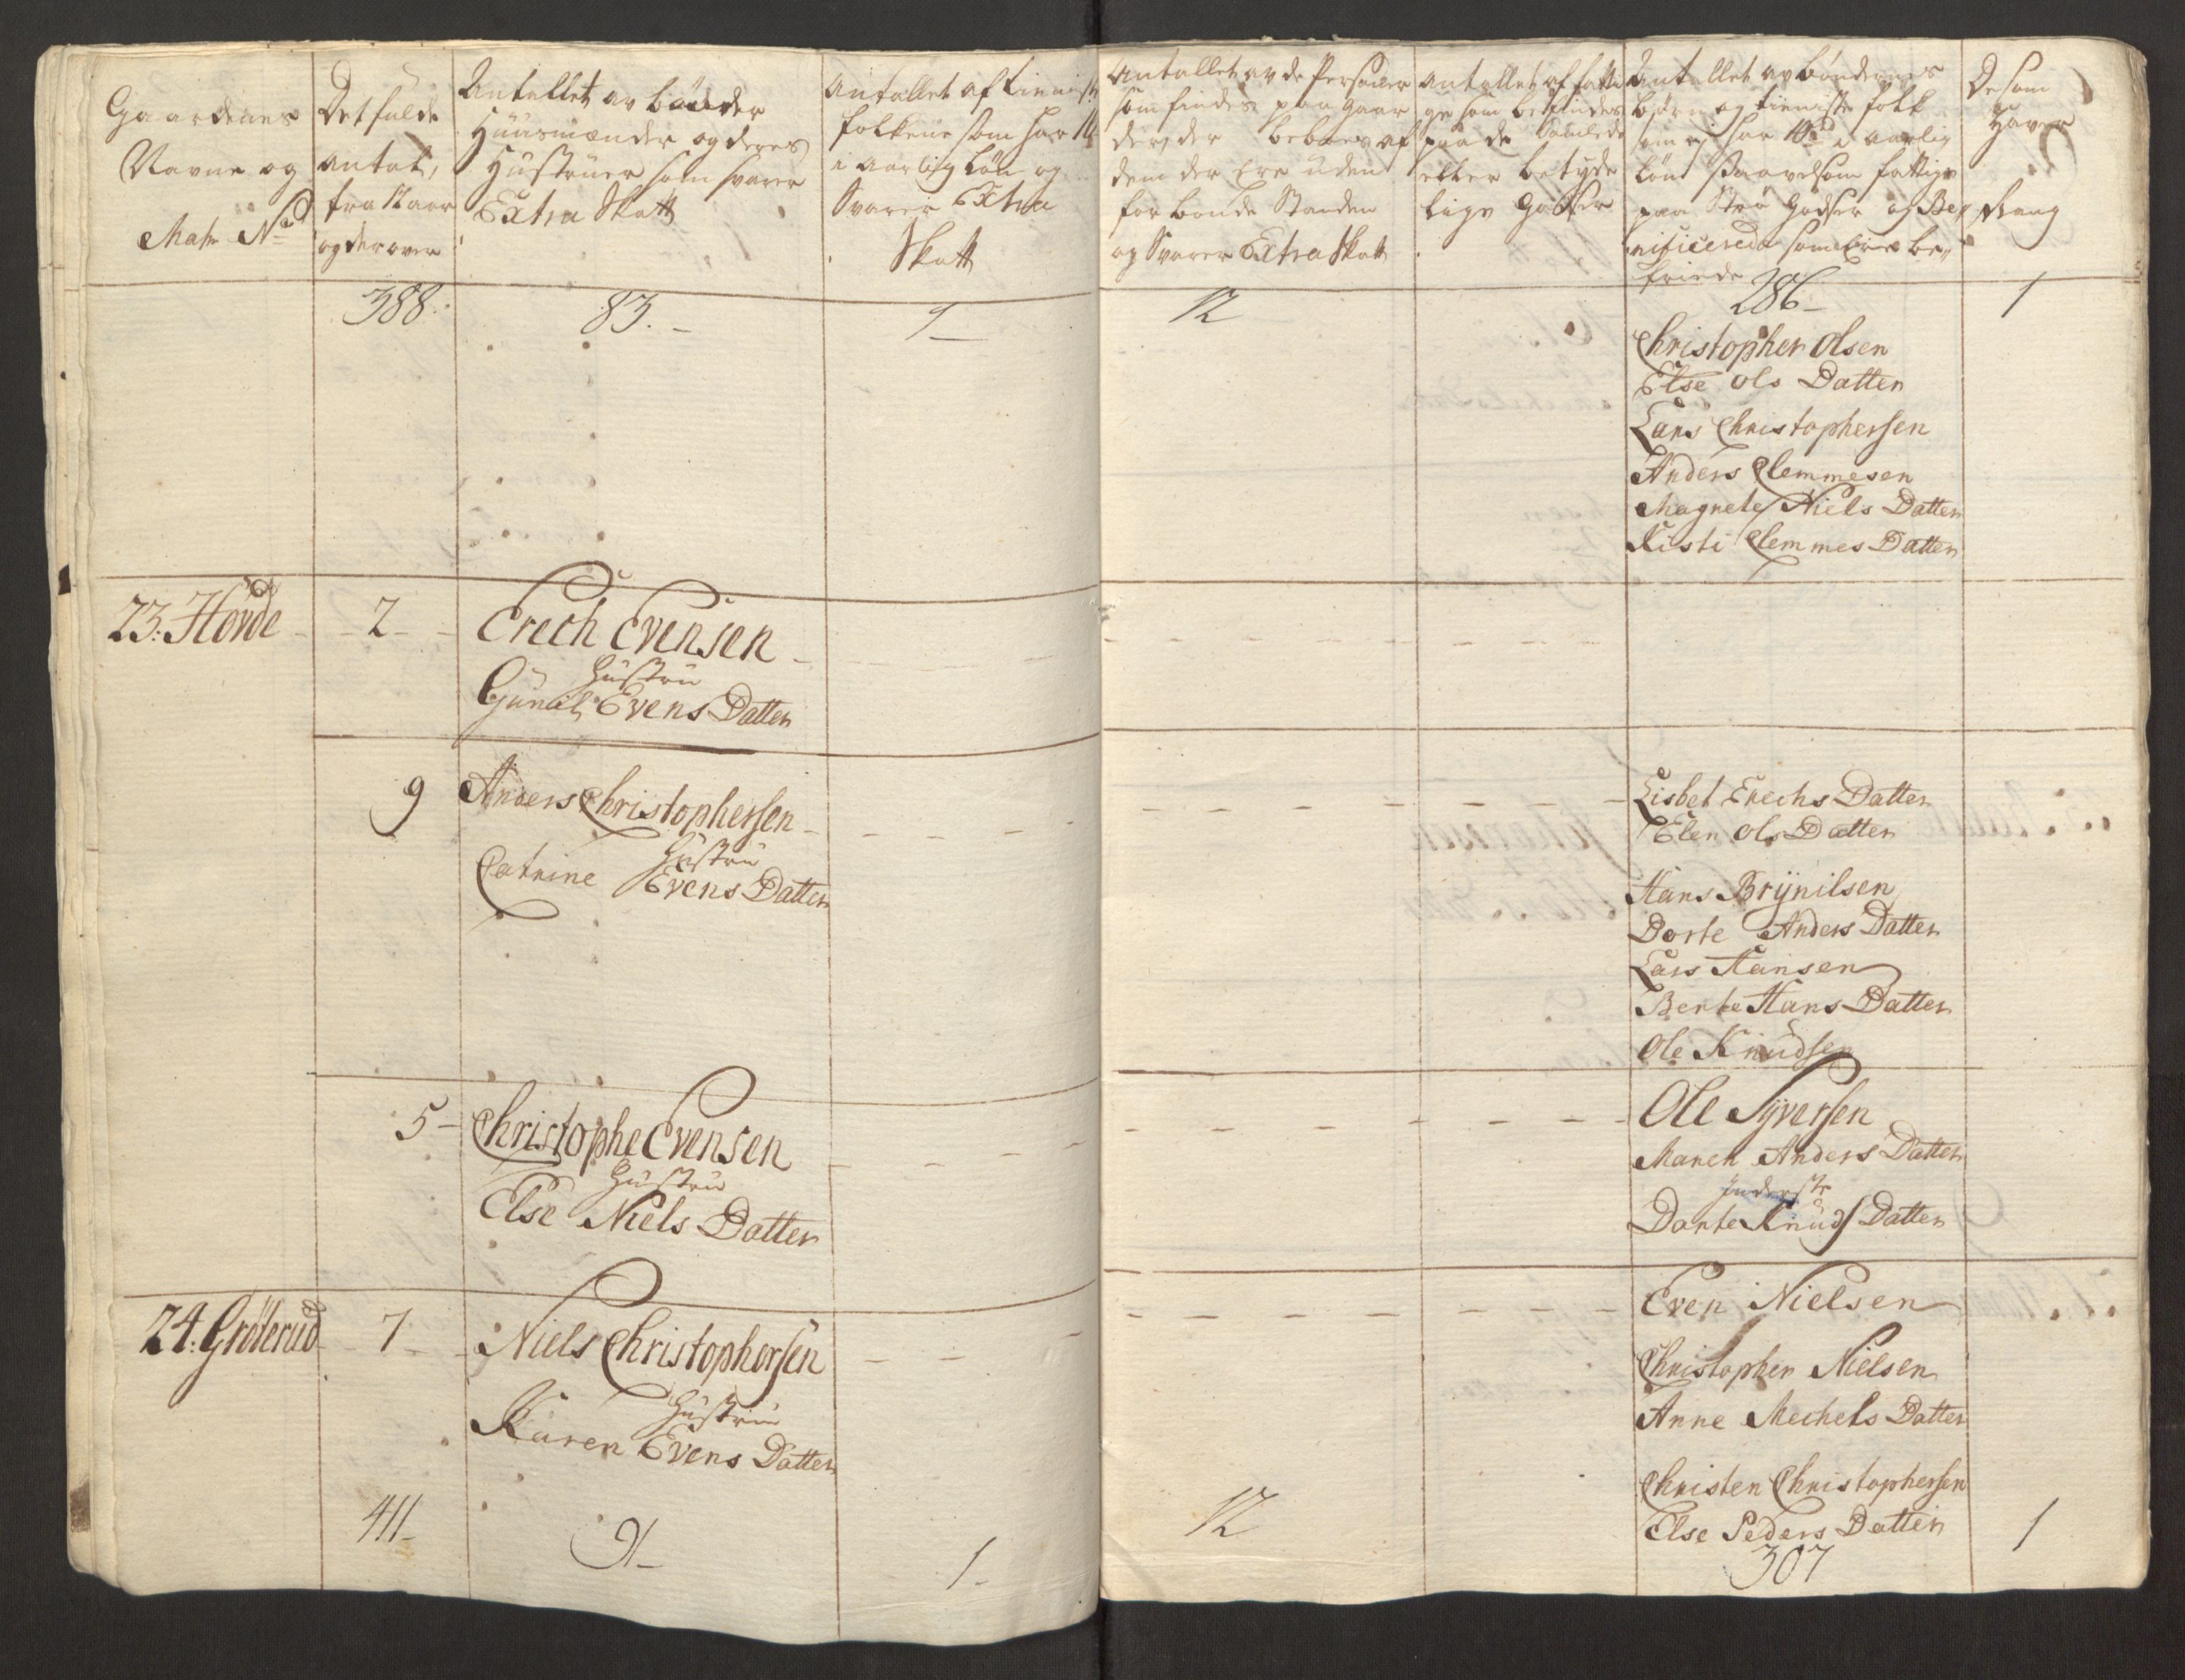 Gaardenes
Navne og
Matr N:
Det fulde
antal,
fra 12 aar
og derover
Antallet av bønder
Huusmænder og deres
Hustruer som svarer
Extra Skatt
Antallet af tieniste
folkene som har 10
i aarlig løn og
Svarer Extra
Skatt
Antallet av de Personer
som findes paa gaar
der, der beboes af
dem der ere uden
for bonde Standen
og Svarer Extra Skatt
Antallet af fatti
ge som befindes
paa de
eller betyde
lige Godser
Antallet av bøndernes
børn og tieniste folk
som ej har 10 i aarlig
løn saavelsom fattige
paa Strø Godser og Be
nificerede som ere be„
friede
De som
haver
Rang
388. 83. 1 12 286 1
Christopher Olsen
Else Ols Datter
Lars Christophersen
Anders Clemmesen
Magnete Niels Datter
Kisti Clemmes Datter
23: Hovde 2 Erech Evensen
Hustru
Gunil Evens Datter
9 Anders Christophersen
Hustru
Catrine Evens Datter
Lisbet Erechs Datter
Elen Ols Datter
Hans Brynilsen
Dorte Anders Datter
Lars Hansen
Berte Hans Datter
Ole Knudsen
5 Christophe Evensen
Hustru
Else Niels Datter
Ole Syversen
Maren Anders Datter
Inderste
Dorte Knuds Datter
24: Grøterud 7 Niels Christophersen
Hustru
Karen Evens Datter
Even Nielsen
Christopher Nielsen
Anne Mechels Datter
Christen Christophersen
Else Peders Datter
411 91 1 12 307 1